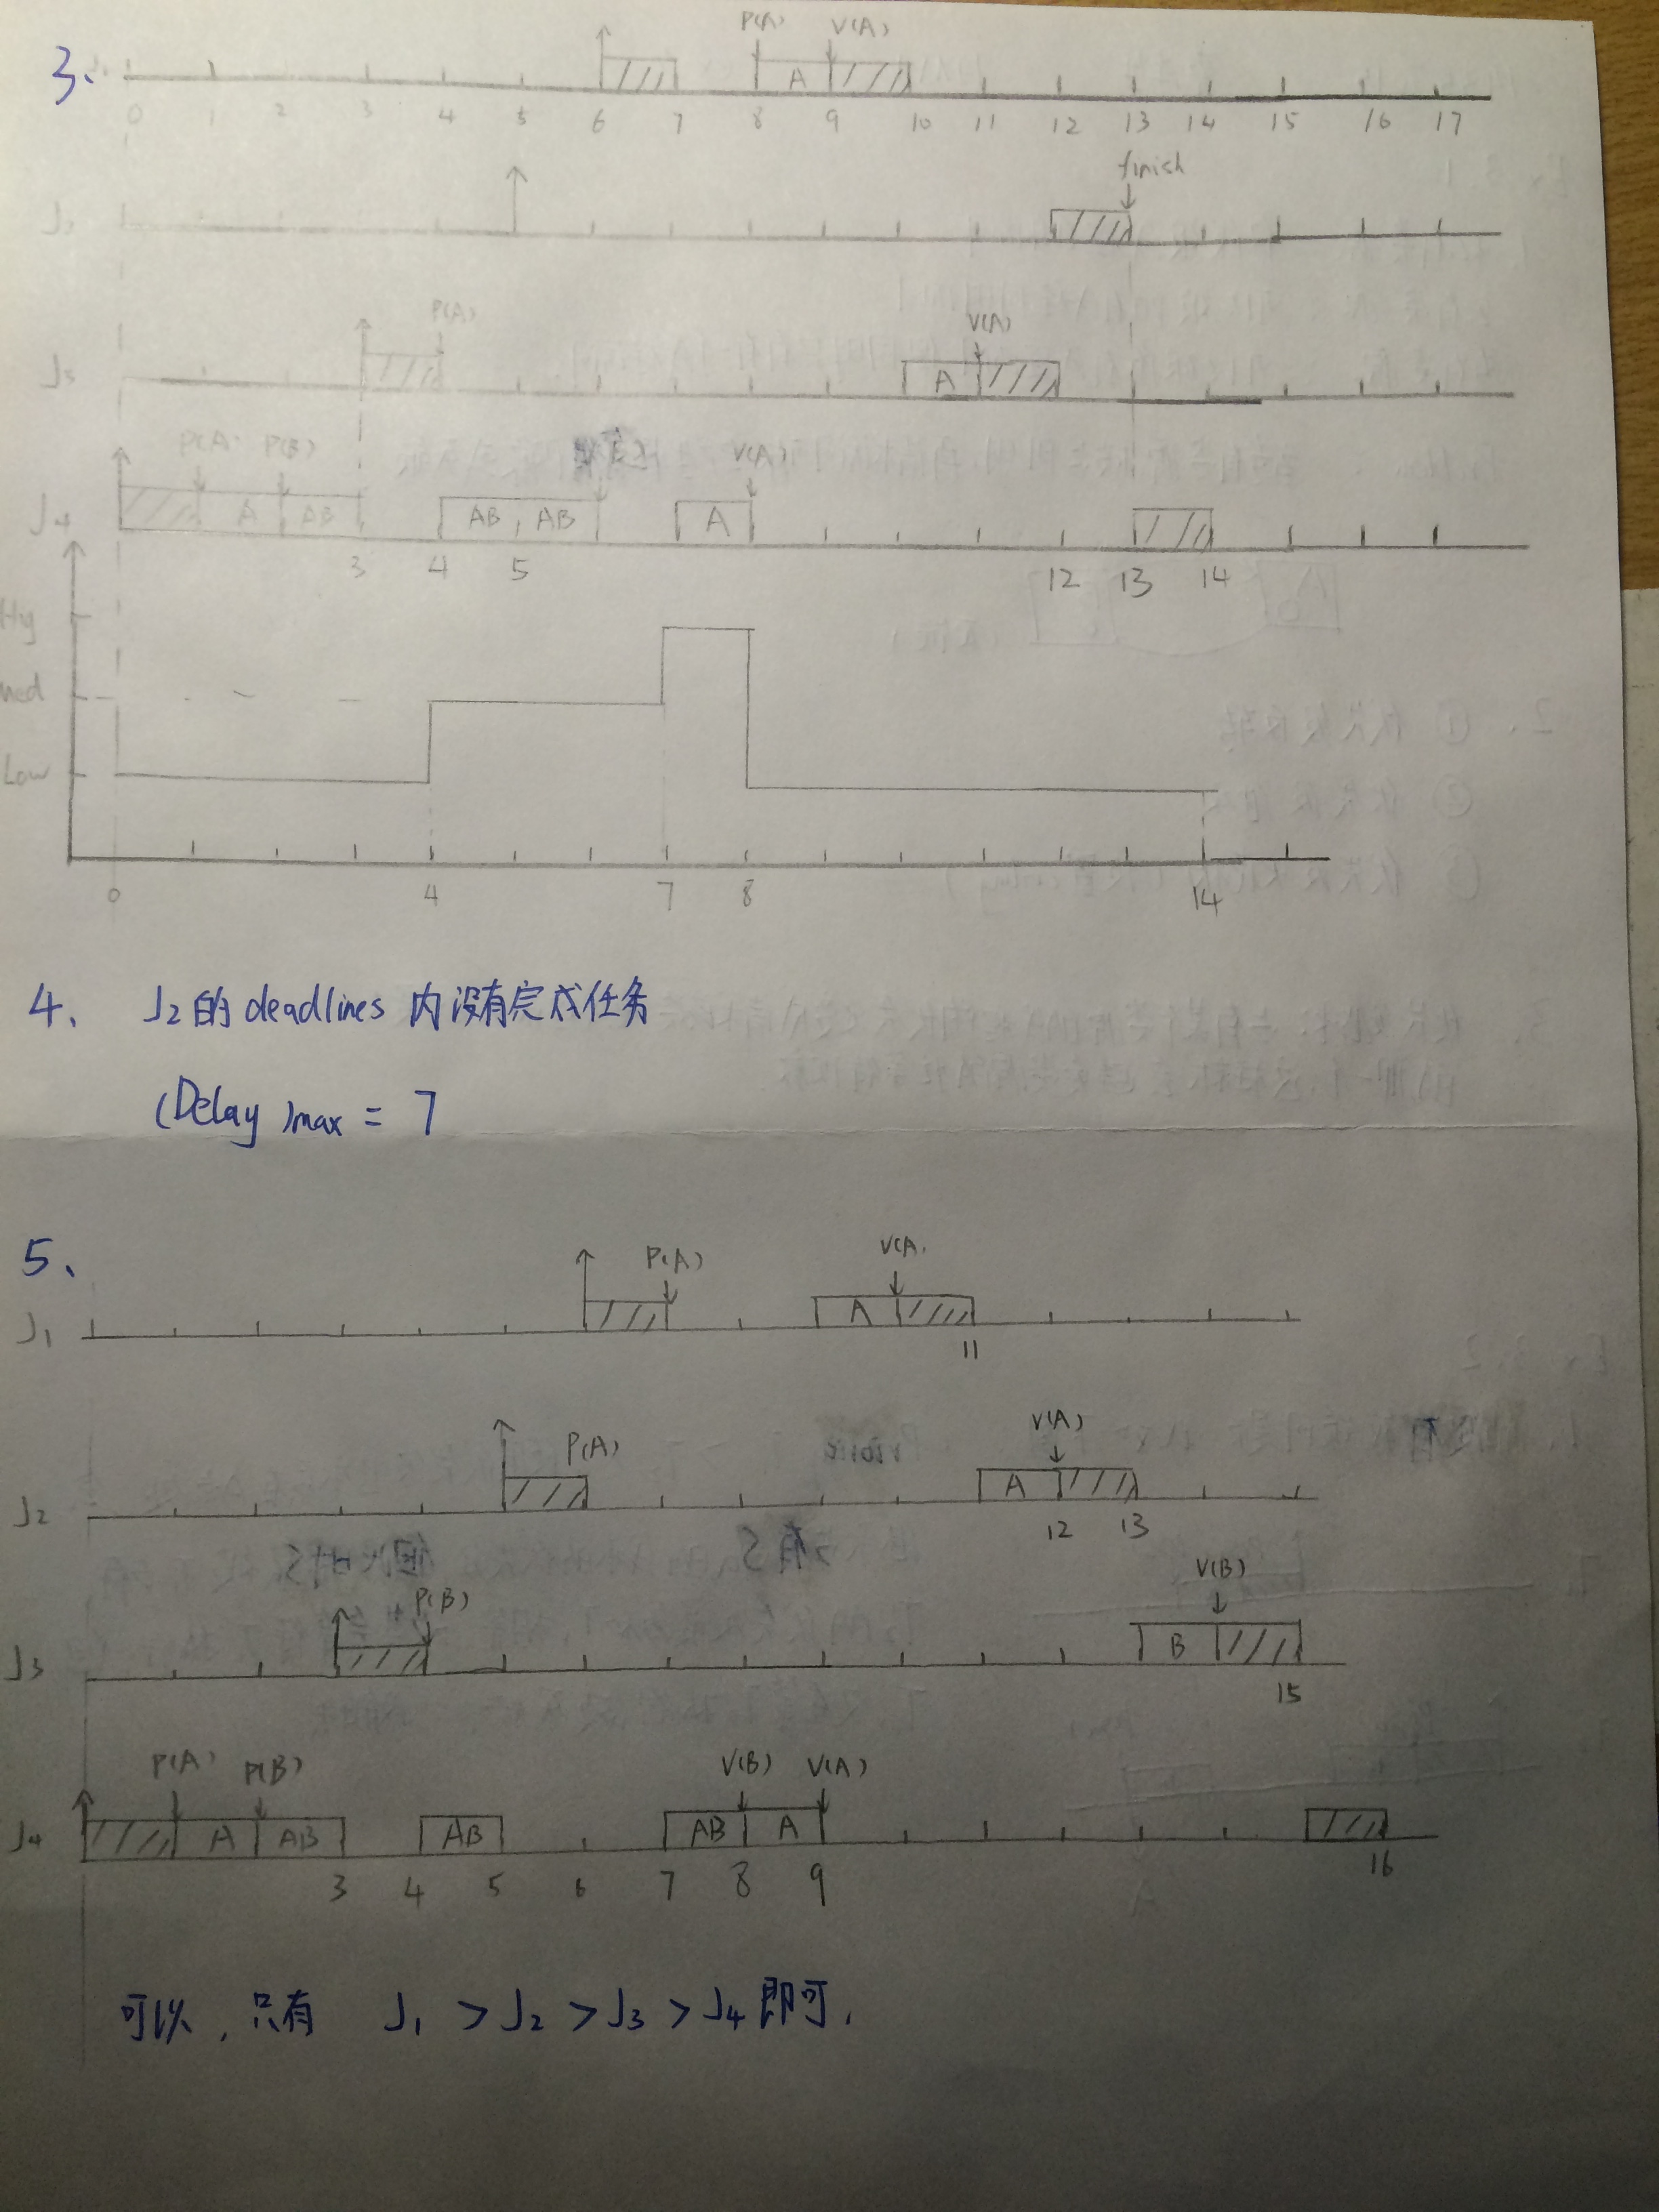 3、
P(A) V(A)
0 1 2 3 4 5 6 7 8 9 10 11 12 13 14 15 16 17
A
finish
J2
P(A) V(A)
J3
A
P(A) P(B) V(A)
J4
A AB AB AB A
3 4 5 12 13 14
Hig
med
Low
0 4 7 8 14
4、 J2的 deadlines 内没有完成任务
(Delay)max = 7
5、
P(A) V(A)
J1
A
11
P(A) V(A)
J2
A
12 13
P(B) V(B)
J3
B
15
P(A) P(B) V(B) V(A)
J4
A AB AB AB A
3 4 5 6 7 8 9 16
可以，只有 J1 > J2 > J3 > J4 即可.